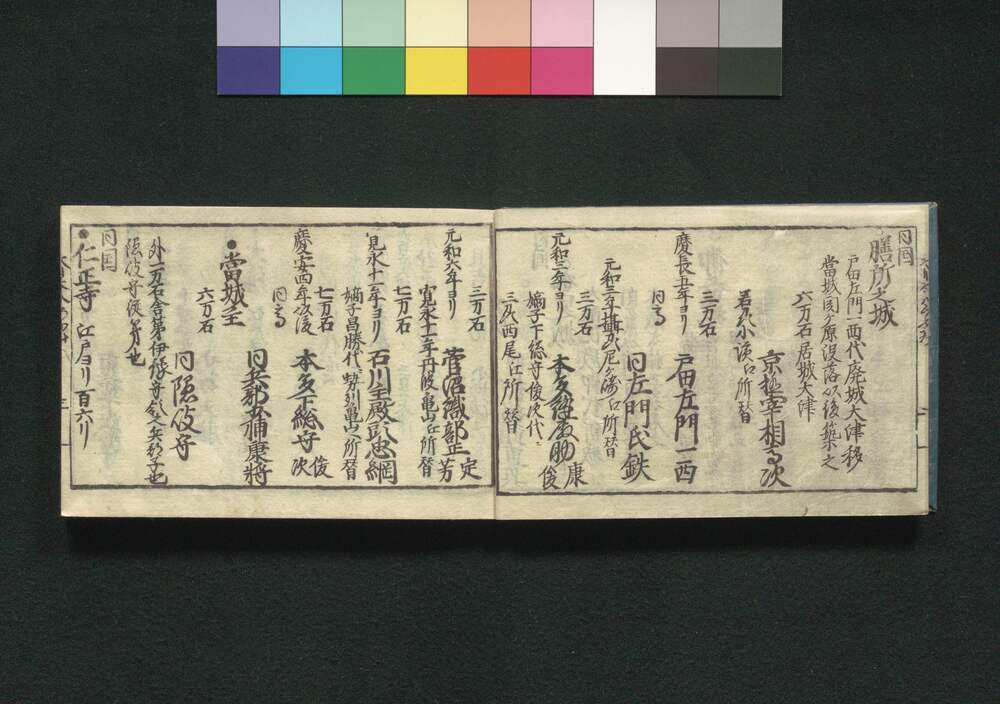 同国
膳所之城
戸田左門一西代廃城大津移
當城関ヶ原没落以後築之
六万石居城大津
京極宰相高次
若州小濱江所替
慶長五年ヨリ
三万石
戸田左門一西
同高
同左門氏鉄
元和三年摂州尼ヶ崎江所替
元和三年ヨリ
三万石
本多縫殿助 康俊
嫡子下総守俊次代ニ
三州西尾江所替
元和六年ヨリ
三万石
菅沼織部正 定芳
寛永十一年丹波亀山江所替
寛永十一年ヨリ
七万石
石川主殿頭忠綱
嫡子昌勝代ニ勢州亀山江所替
慶安四年以後
七万石
本多下総守 俊次
同高
同兵部少輔康将
●當城主
六万石
同隠岐守
外一万石舎弟伊豫守
隠岐守
同国
●仁正寺 江戸ヨリ百六リ